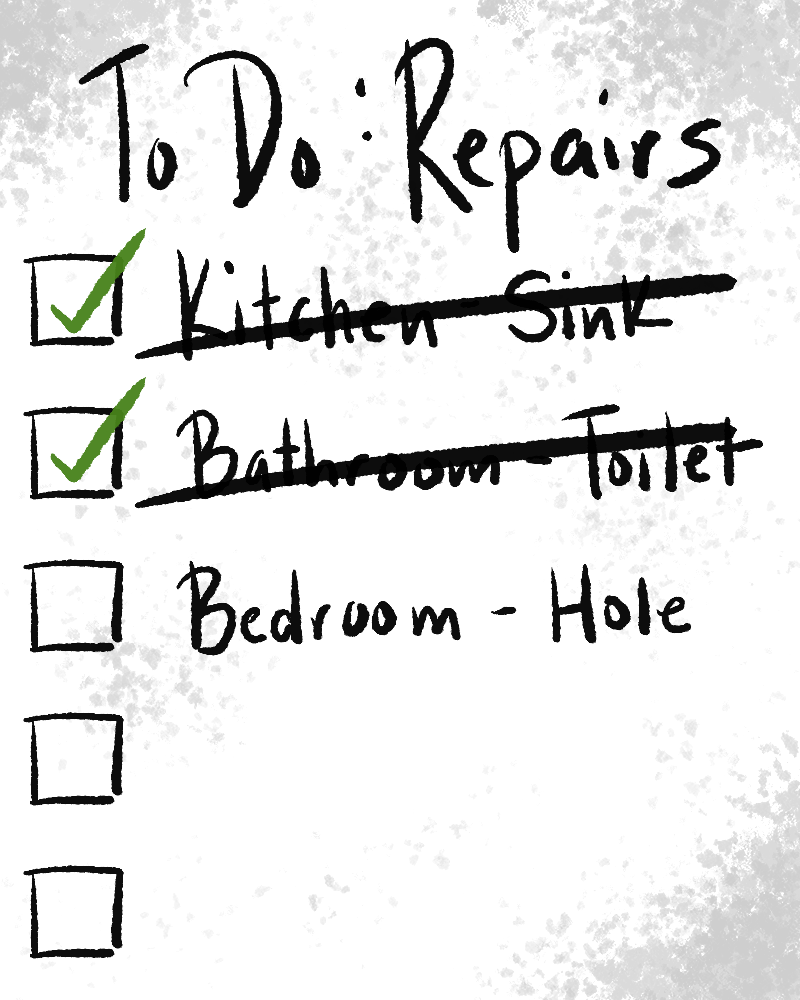 To Do: Repairs
Kitchen Sink
Bathroom - Toilet
Bedroom - Hole